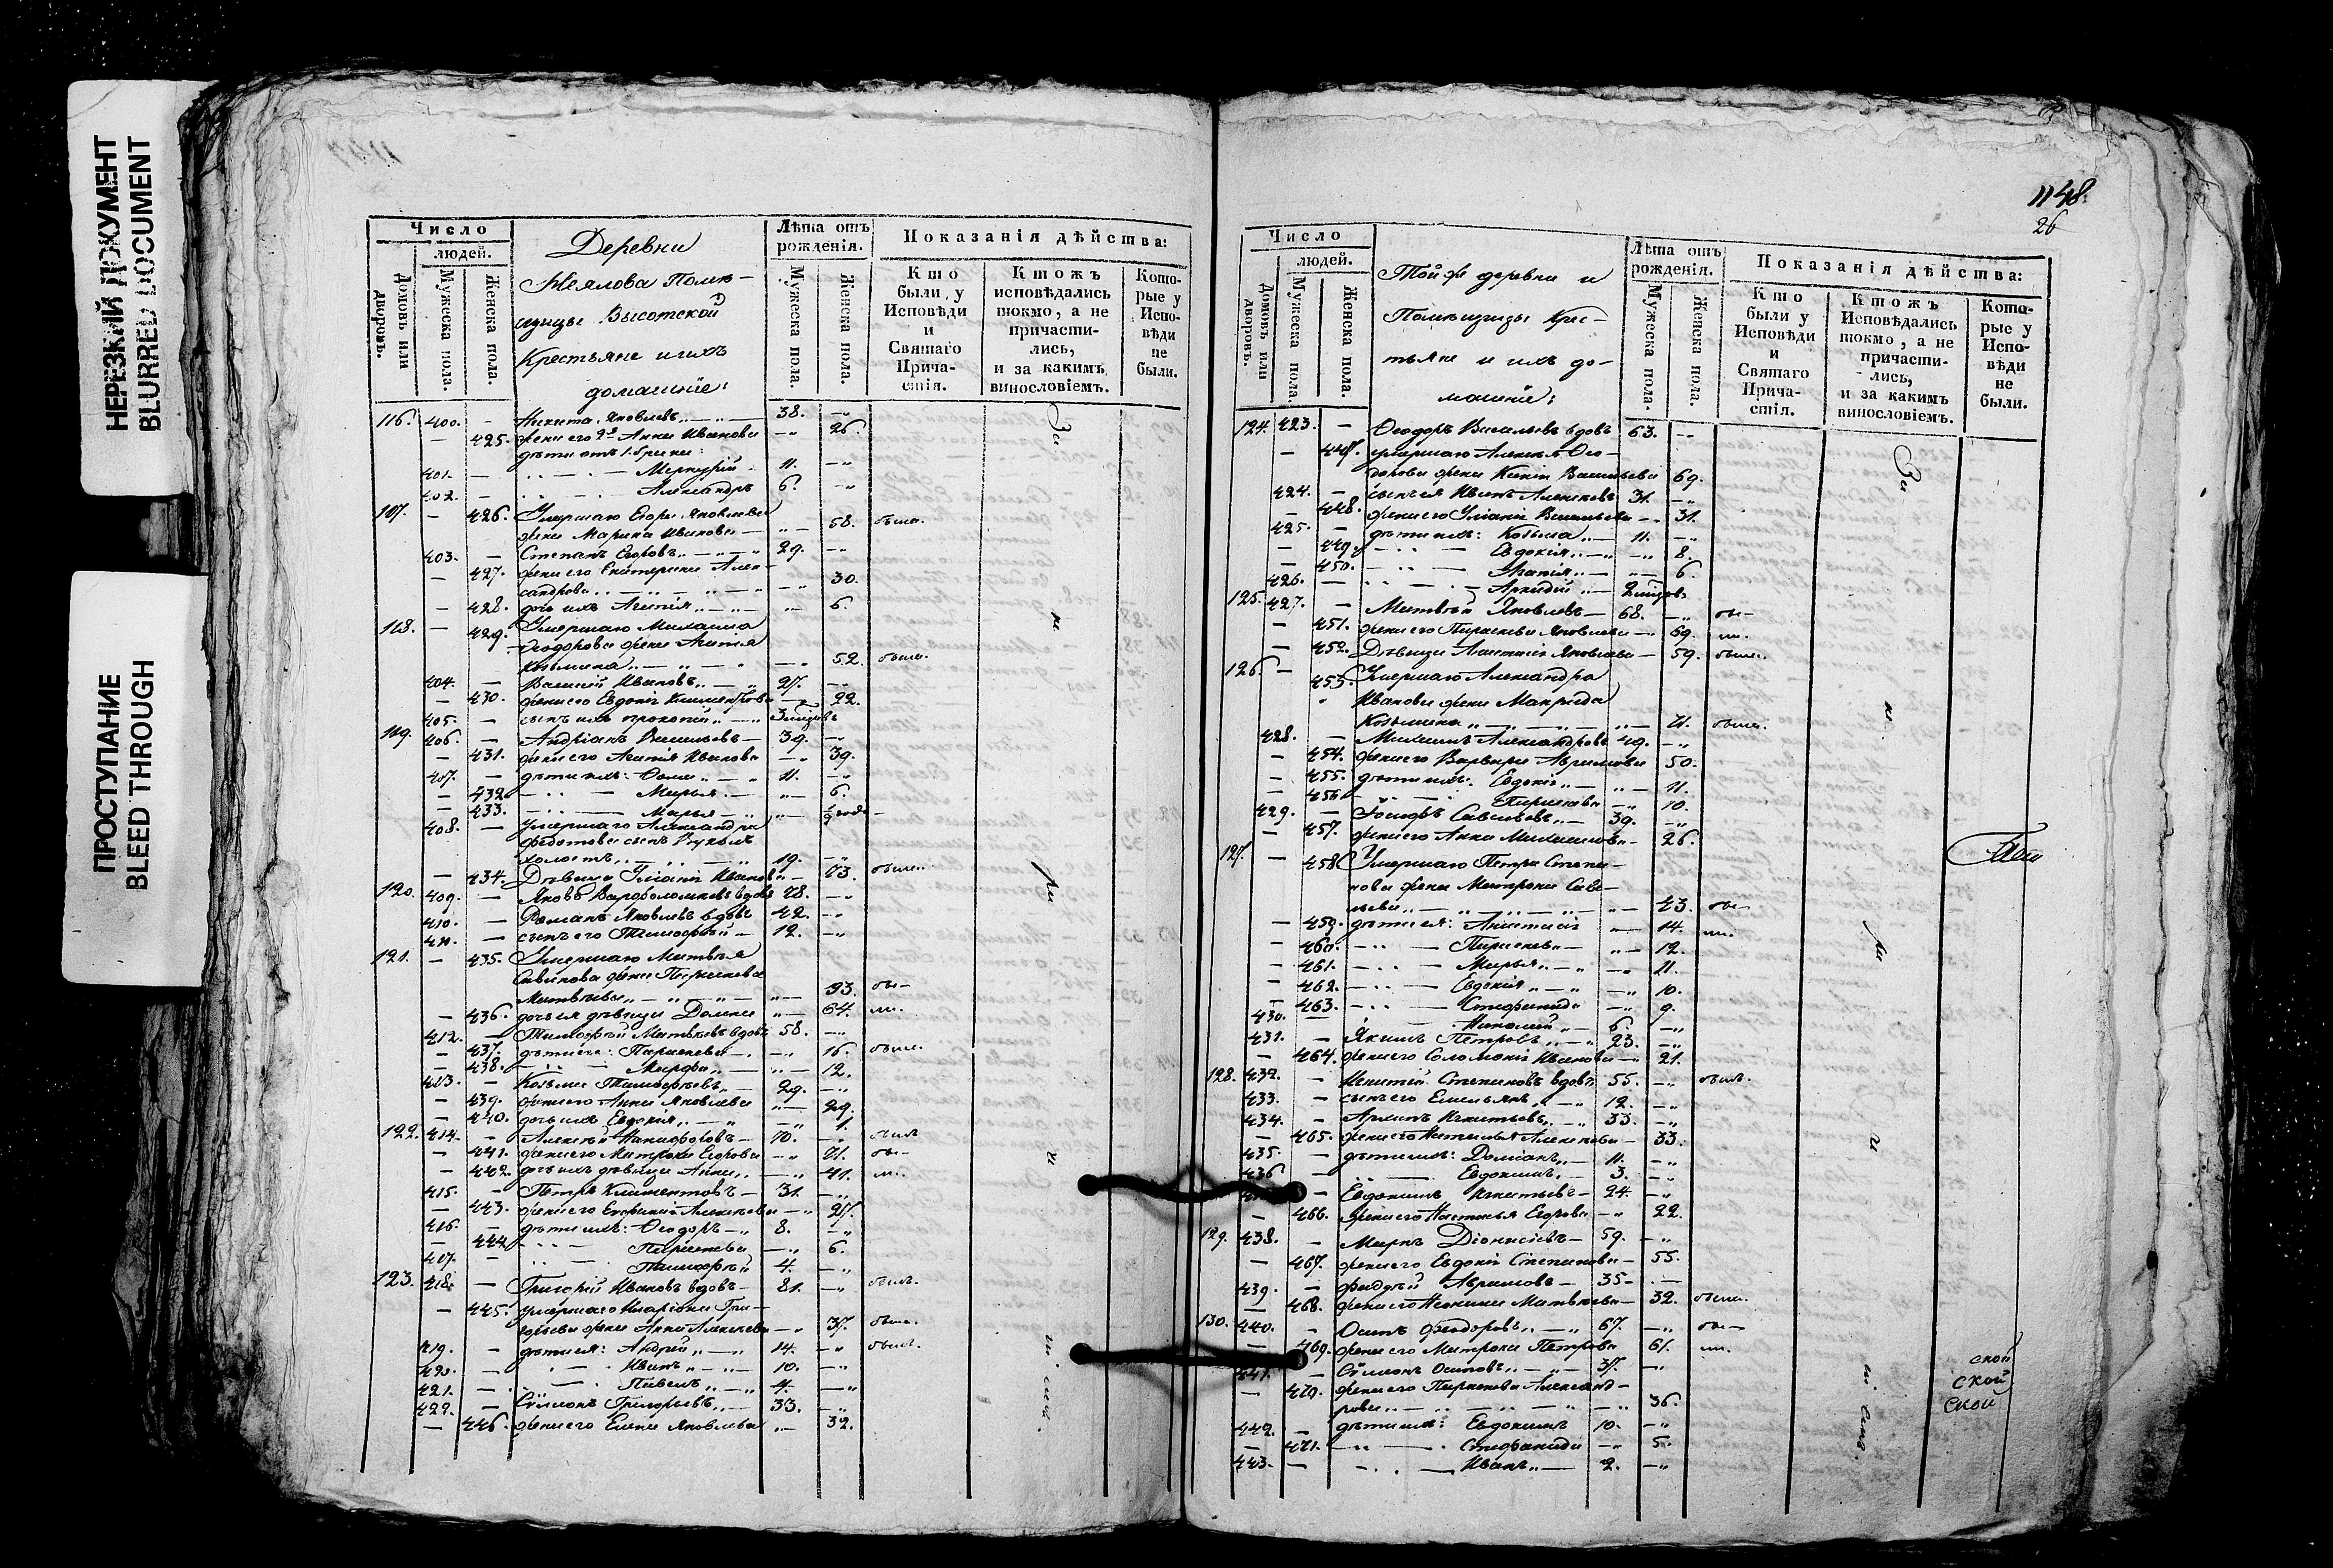 НЕРЕЗКИЙ ДОКУМЕНТ
BLURRED DOCUMENT
ПРОСТУПАНИЕ
BLEED THROUGH
Число
людей.
Домовъ или дворовъ.
Мужеска пола.
Женска пола.
Деревни
Помѣ-
щицы Высотской
Крестьяне и ихъ
домашніе:
Лѣта отъ рожденія.
Мужеска пола.
Женска пола.
Показанія дѣйства:
Кто были у Исповѣди и Святаго Прича-стія.
Ктожъ исповѣдались токмо, а не причасти-лись, и за какимъ винословіемъ.
Кото-рые у Испо-вѣди не были.
116. 400. — Никита Яковлевъ 38. —
— 425. жена его 2я Анна Иванова — 26.
дѣти отъ 1 брака:
401. — Меркурій 11. —
402. — Александръ 6. —
— 426. Умершаго Егора Яковлева
жена Марина Иванова — 58. была.
403. — Степанъ Егоровъ 29. —
— 427. жена его Екатерина Алек-
сандрова — 30.
— 428. дочь ихъ Агапія — 6.
118. — 429. Умершаго Михаила
Ѳеодорова жена Агапія
Козьмина — 52. была.
404. — Василій Ивановъ 27. —
— 430. жена его Евдокія — 22.
405. — сынъ ихъ Прокопій
119. 406. — Андріанъ Васильевъ 39. —
— 431. жена его Агапія Иванова — 39.
407. — дѣти ихъ: Ѳома 11. —
— 432. Марья — 6.
— 433. Марья — ½ года
408. — умершаго Александра
Федотова сынъ
холостъ 19. —
— 434. Дѣвица Уліанія Иванова — 73. была.
120. 409. — Яковъ Варфоломеевъ вдовъ 78. —
410. — Романъ Яковлевъ вдовъ 42. —
411. — сынъ его Тимофей 12. —
121. — 435. Умершаго Матвѣя
Савинова жена Параскева
Матвѣева — 93. бы-
— 436. дочь ея дѣвица Домна — 64. ли.
412. — Тимофей Матвѣевъ вдовъ 58. —
— 437. дѣти его: Параскева — 16. была.
— 438. Марфа — 12.
413. — Козьма Тимофеевъ 29. —
— 439. жена его Анна Яковлева — 29.
— 440. дочь ихъ Евдокія — 1.
122. 414. — Алексѣй Никифоровъ 70. — былъ
— 441. жена его Матрона Егорова — 71. бы-
— 442. дочь ихъ дѣвица Анна — 41. ли.
415. — Петръ Климентовъ 31. —
— 443. жена его Алексѣева — 27.
416. — дѣти ихъ: Ѳеодоръ 8. —
— 444. Параскева — 6.
417. — Тимофей 4. —
123. 418. — Григорій Ивановъ вдовъ 81. — былъ.
— 445. умершаго Иларіона Гри-
горьева жена Анна Алексѣева — 37. была.
419. — дѣти ея: Андрей 14. — былъ.
420. — Иванъ 10. —
421. — Павелъ 4. —
422. — Сѵмеонъ Григорьевъ 33. —
— 446. жена его Елена Яковлева — 32.
1148.
26
Число
людей.
Домовъ или дворовъ.
Мужеска пола.
Женска пола.
Той же деревни и
Помѣщицы Крес-
тьяне и ихъ до-
машніе:
Лѣта отъ рожденія.
Мужеска пола.
Женска пола.
Показанія дѣйства:
Кто были у Исповѣди и Святаго Прича-стія.
Ктожъ Исповѣдались токмо, а не причасти-лись, и за какимъ винословіемъ.
Кото-рые у Испо-вѣди не были.
124. 423. — Ѳеодоръ Васильевъ вдовъ 63. —
— 447. умершаго Алексѣя Ѳео-
дорова жена Ксенія Васильева 69.
424. — сынъ ея Иванъ Алексѣевъ 31. —
— 448. жена его Уліанія Васильева — 31.
425. — дѣти ихъ: Козьма 11. —
— 449. Евдокія — 8.
— 450. Агапія — 6.
426. — Аркадій
125. 427. — Матвѣй Яковлевъ 68. — бы-
— 451. жена его Параскева Яковлева — 69. ли.
— 452. Дѣвица Анастасія Яковлева — 59. была.
126. — 453. Умершаго Александра
Иванова жена Макрида
Козьмина — 71. была.
428. — Михаилъ Александровъ 49. —
— 454. жена его Варвара Абрамова 50.
— 455. дѣти ихъ: Евдокія — 11.
— 456. Параскева — 10.
429. — Савельевъ 39. —
— 457. жена его Анна Михайлова — 26.
127. — 458. Умершаго Петра Степа-
нова жена Матрона Саве-
льева — 43. бы-
— 459. дѣти ея: Анастасія — 14. ли.
— 460. Параскева — 12.
— 461. Марья — 11.
— 462. Евдокія — 10.
— 463. Стефанида — 9.
430. — Николай 6. —
431. — Якимъ Петровъ 23. —
— 464. жена его Соломонія Иванова — 21.
128. 432. — Игнатій Степановъ вдовъ 55. — былъ.
433. — сынъ его Емельянъ 12. —
434. — Архипъ Игнатьевъ 33. —
— 465. жена его Наталья Алексѣева — 33.
435. — дѣти ихъ: Доміанъ 11. —
436 — Евдокимъ 3. —
— Евдокимъ Игнатьевъ 24. —
— 466. жена его Наталья Егорова — 22.
129. 438. — Маркъ Діонисіевъ 59. —
— 467. жена его Евдокія Степанова — 55.
439. — Фаддей Абрамовъ 35 —
— 468. жена его Неонила Матвѣева — 32. была.
130. 440. — Осипъ Ѳеодоровъ 67. — бы-
— 469. жена его Матрона Петрова 61. ли.
441. — Сѵмеонъ Осиповъ 37. —
— 470. жена его Параскева Александ-
рова — 36.
442. — дѣти ихъ: Евдокимъ 10. —
— 471. Стефанида — 5.
443. — Иванъ 2. —
ской
ской
ской